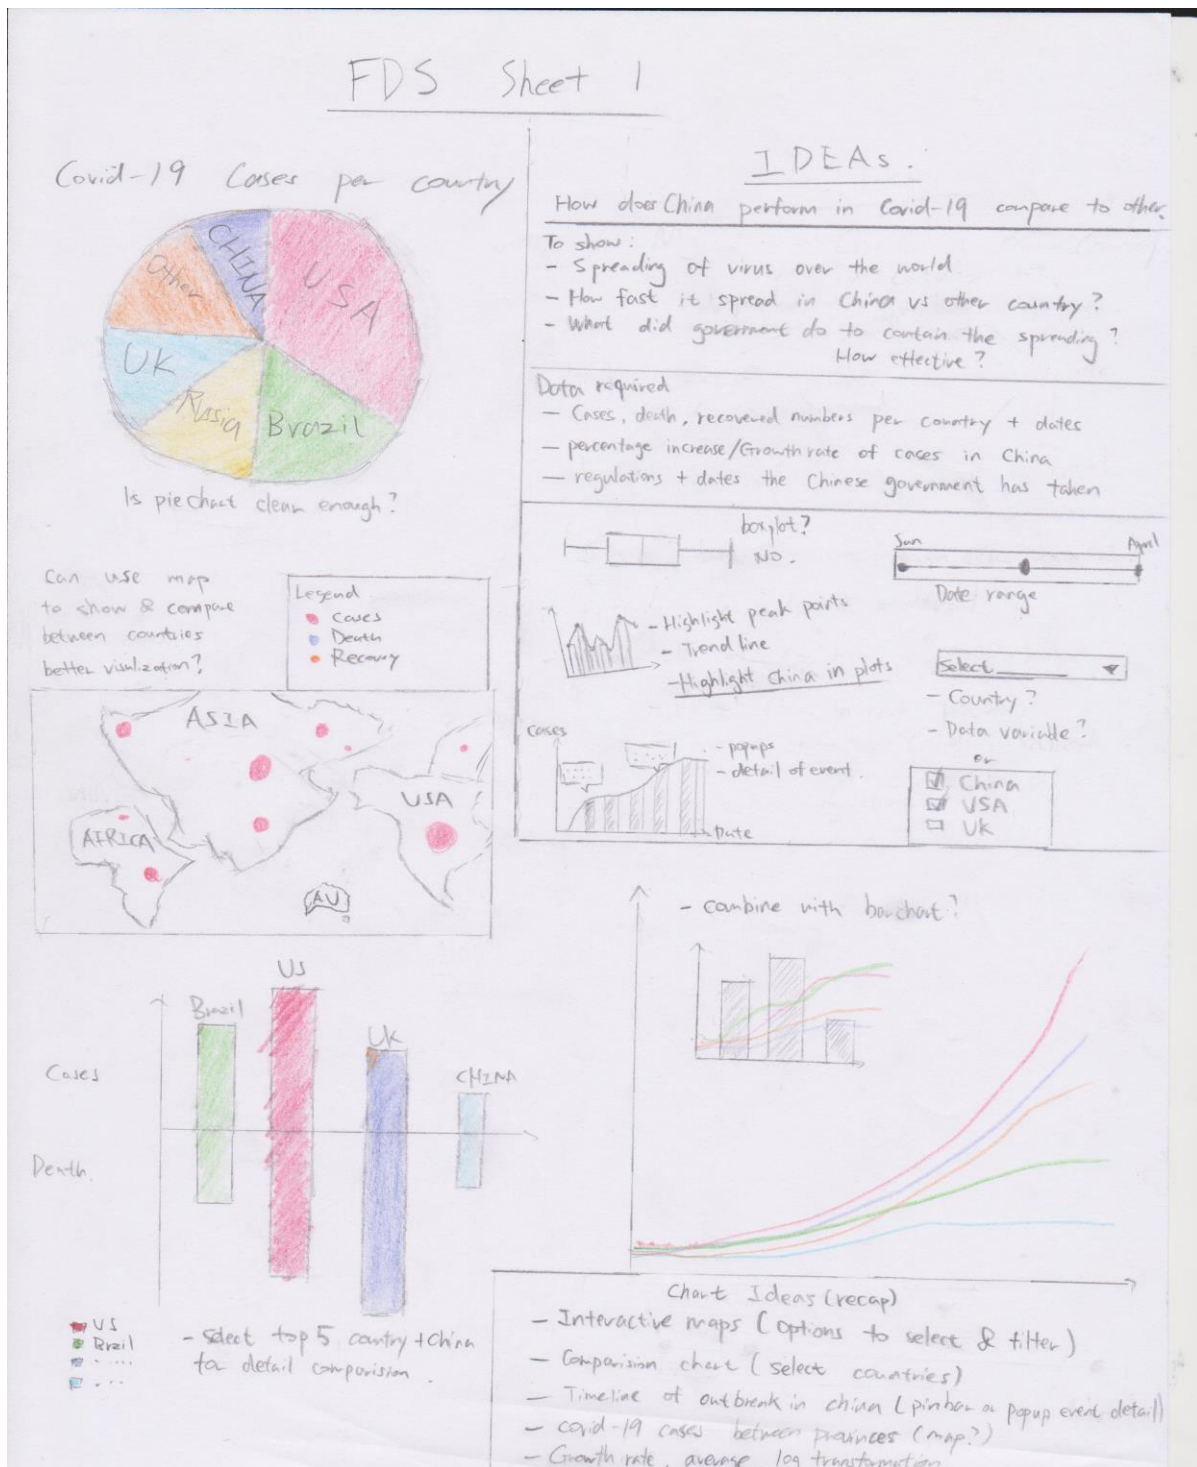 FDS Sheet 1
Covid-19 Cases per country
CHINA
USA
Other
UK
Russia
Brazil
Is piechart clear enough?
Can use map
to show & compare
between countries
better visulization?
Legend
Cases
Death
Recovery
ASIA
USA
AFRICA
AU
US
Brazil
UK
CHINA
Cases
Death.
US
Brzil
- select top 5 country + China
for detail comparision.
IDEAs.
How does China perform in Covid-19 compare to other.
To show:
- Spreading of virus over the world
- How fast it spread in China vs other country?
- What did government do to contain the spreading?
How effective?
Data required
- Cases, death, recovered numbers per country + dates
- percentage increase/Growth rate of cases in China
- regulations + dates the Chinese government has taken
boxplot?
NO.
Jan
April
Date range
- Highlight peak points
- Trend line
- Highlight China in plots
Select
- Country?
- Data variable?
or
China
USA
UK
Cases
- popups
- detail of event.
Date
- combine with barchart?
Chart Ideas (recap)
- Interactive maps (options to select & filter)
- Comparision chart (select countries)
- Timeline of outbreak in china (pinbar or popup event detail)
- covid-19 cases between provinces (map?)
- Growth rate, average log transformation